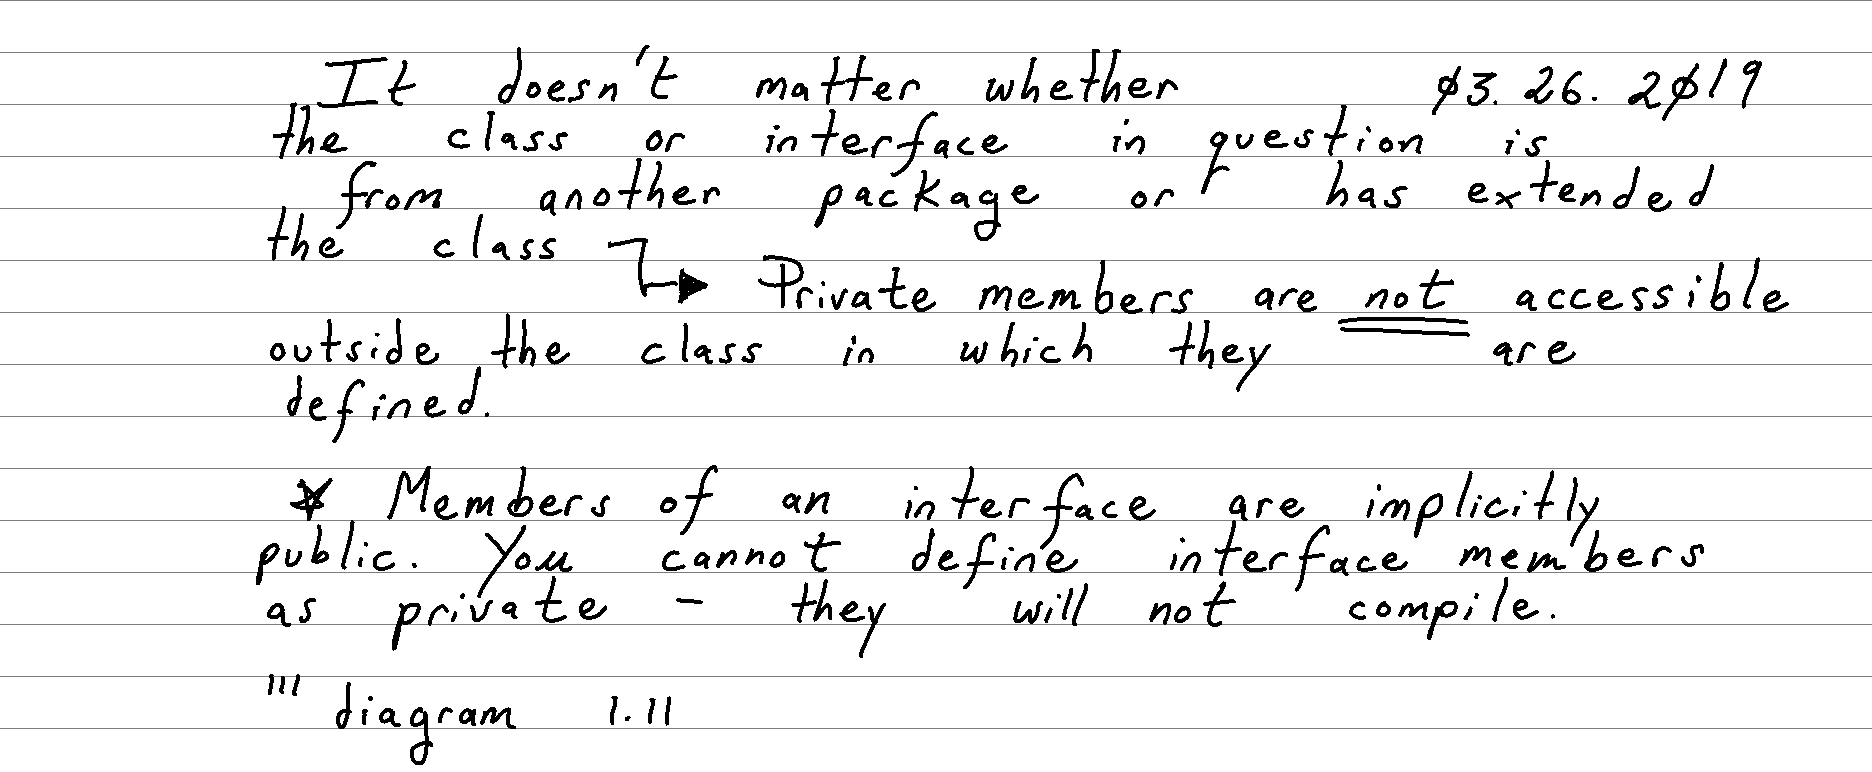 It doesn't matter whether 03.26.2019
the class or interface in question is
from another package or has extended
the class → Private members are not accessible
outside the class in which they are
defined.
* Members of an interface are implicitly
public. You cannot define interface members
as private - they will not compile.
''' diagram 1.11